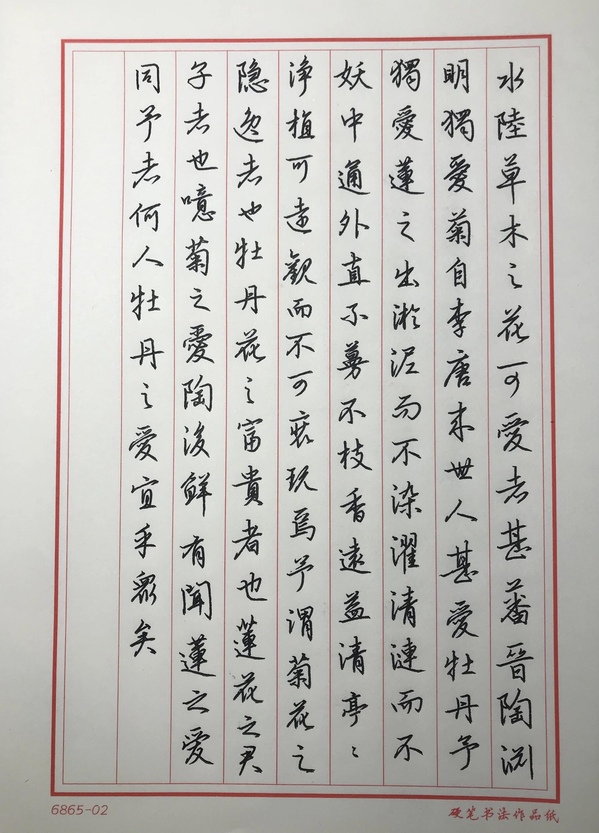 水陸草木之花可愛者甚蕃晉陶淵
明獨愛菊自李唐来世人甚愛牡丹予
獨愛蓮之出淤泥而不染濯清漣而不
妖中通外直不蔓不枝香遠益清亭〻
浄植可遠觀而不可亵玩焉予謂菊花之
隐逸者也牡丹花之富貴者也蓮花之君
子者也噫菊之愛陶後鮮有聞蓮之愛
同予者何人牡丹之愛宜乎衆矣
6865-02
硬笔书法作品纸